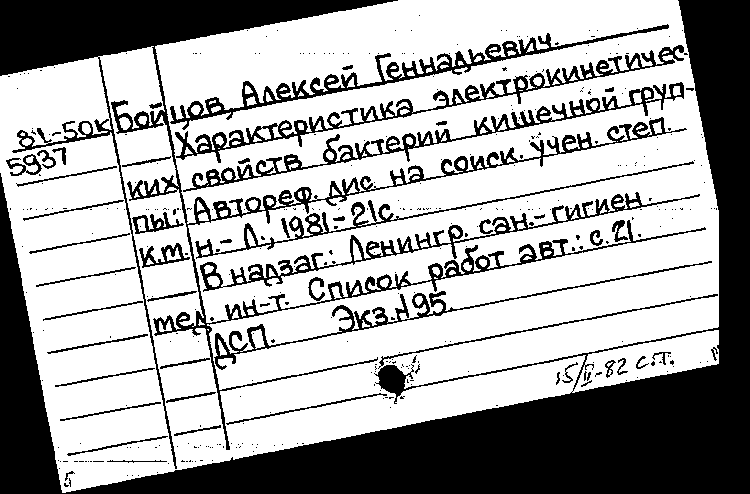 81-50к
5937
Бойцов, Алексей Геннадьевич.
Характеристика электрокинетичес-
ких свойств бактерий кишечной груп-
пы: Автореф. дис. на соиск. учен. степ.
к.м.н.- Л., 1981.- 21с.
В надзаг.: Ленингр. сан.-гигиен.
мед. ин-т. Список работ авт.: с.21.
ДСП. Экз.№95.
15/II-82 С.Т.
5